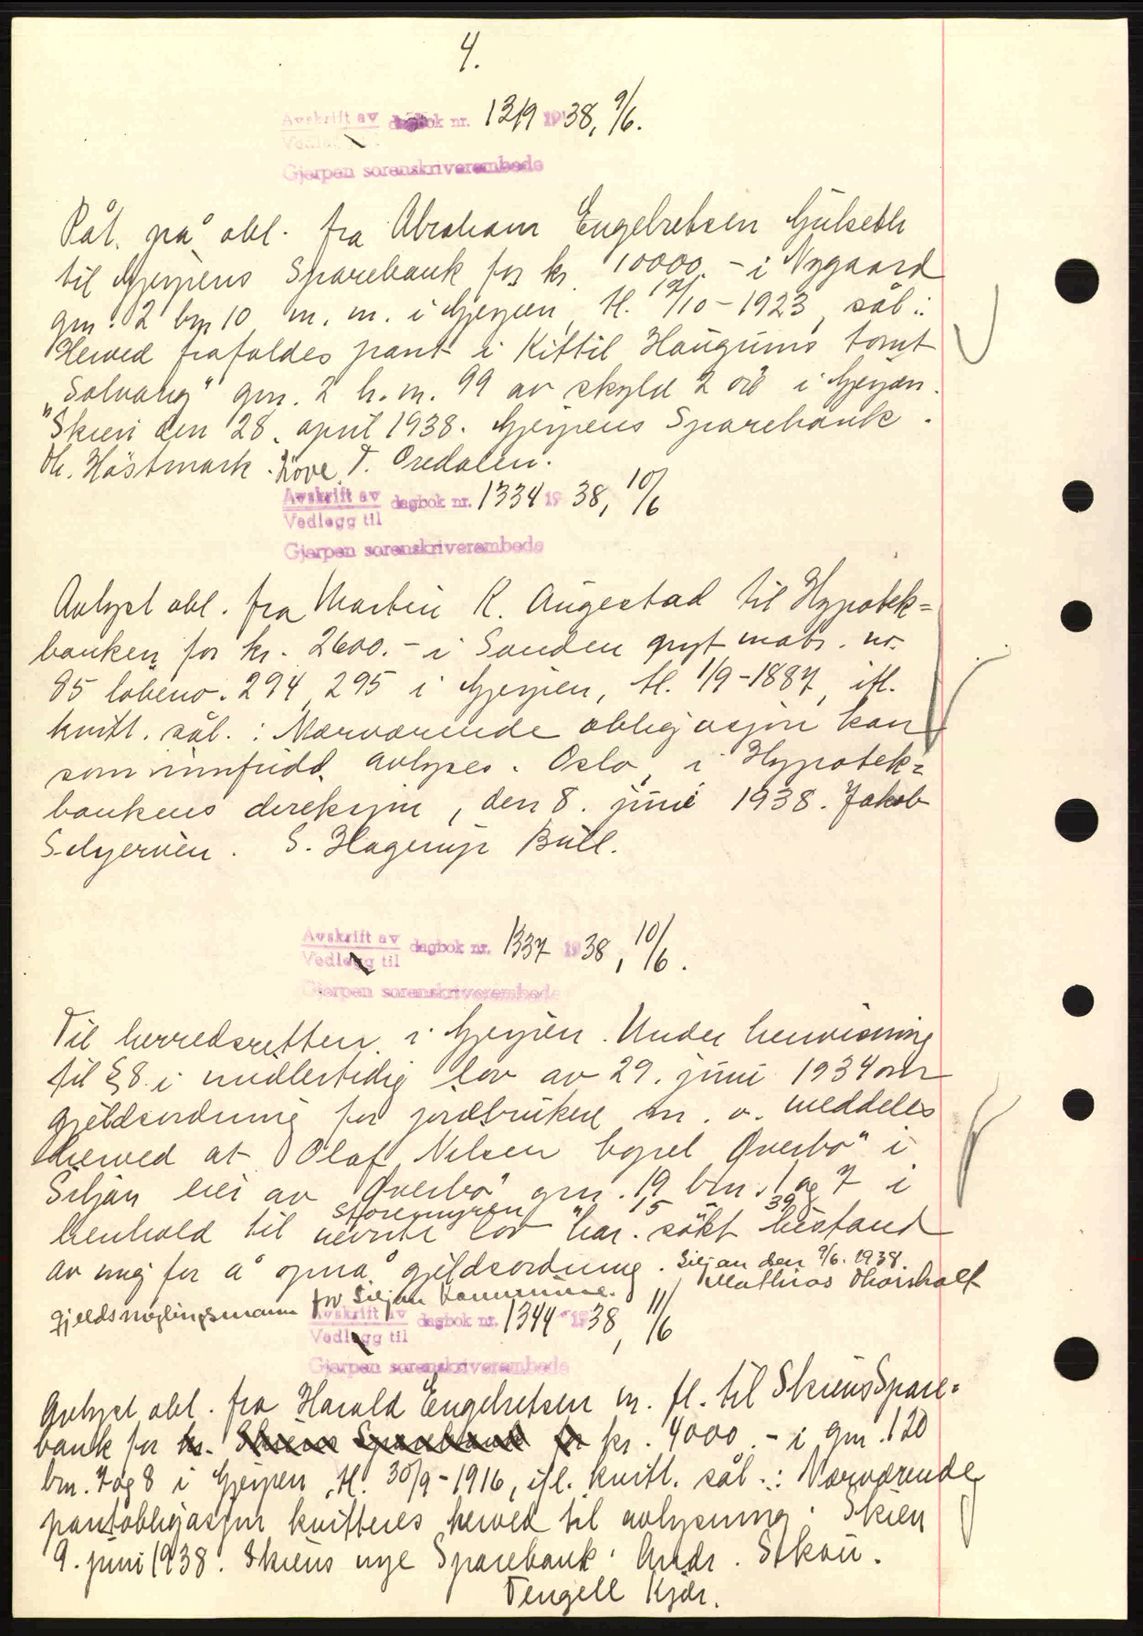 4.
Avskrift av dagbok nr. 1319 1938, 9/6.
Vedlegg til
Gjerpen sorenskriverembede
Påt. på obl. fra Abraham Engebretsen Gulseth
til Gjerpens Sparebank for kr. 10000.- i Nygaard
gnr. 2 bnr 10 m. m. i Gjerpen, tl. 12/10-1923, sål.:
Herved frafaldes pant i Kittil Haugums tomt
"Solvang" gnr. 2 b.n. 99 av skyld 2 øre i Gjerpen.
Skien den 28. april 1938. Gjerpens Sparebank.
Th. Høstmark. Kove. T. Oredalen.
Avskrift av dagbok nr. 1334 1938, 10/6
Vedlegg til
Gjerpen sorenskriverembede
Avlyst obl. fra Martin R. Augestad til Hypotek=
banken for kr. 2600.- i Sanden gnyt matr. nr.
85 løbeno. 294, 295 i Gjerpen, tl. 1/9-1887, ifl.
kvitt. sål.: Nærværende obligasjon kan
som innfridd avlyses. Oslo, i Hypotek=
bankens direksjon, den 8. juni 1938. Jakob
Selyerven. S. Hagerup Bull.
Avskrift av dagbok nr. 1337 1938, 10/6.
Vedlegg til
Gjerpen sorenskriverembede
Til herredsretten i Gjerpen. Under henvisning
til § 8 i midlertidig lov av 29. juni 1934 om
gjeldsordning for jordbrukere m. v. meddeles
herved at Olaf Nilsen bopel "Øverbø" i
Siljan eier av "Øverbø" gnr. 19 bnr. 1 og 7 i
Storemyren 15 39
henhold til nevnte lov har søkt bistand
av mig for å opnå gjeldsordning. Siljan den 9/6. 1938.
Mathias Thorsholt
gjeldsmeglingsmann for Siljan kommune.
Avskrift av dagbok nr. 1344 1938, 11/6
Vedlegg til
Gjerpen sorenskriverembede
Avlyst obl. fra Harald Engebretsen m. fl. til Skiens Spare=
bank for kr. Skiens Sparebank for kr. 4000.- i gnr. 120
bnr. 7 og 8 i Gjerpen, tl. 30/9-1916, ifl. kvitt. sål.: Nærværende
pantobligasjon kvitteres herved til avlysning. Skien
9. juni 1938. Skiens nye Sparebank. Andr. Stkau.
Tengell Kjær.